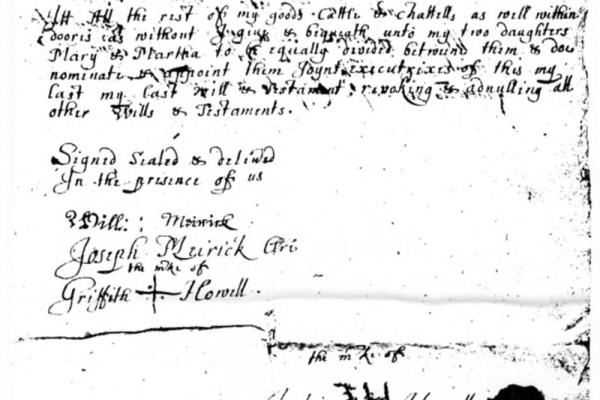 Itt All the rest of my goods Cattle & Chattells as well within
doores as without I give & biqueath unto my two daughters
Mary & Martha to be equally divided betwund them & doe
nominate & appoint them Joynt executrixes of this my
last my last Will & Testament revoking & adnulling all
other Wills & Testaments.
Signed Sealed & delivred
In the presence of us
Will: Meirick
Joseph Meirick
the mke of
Griffith + Howell.
the mke of